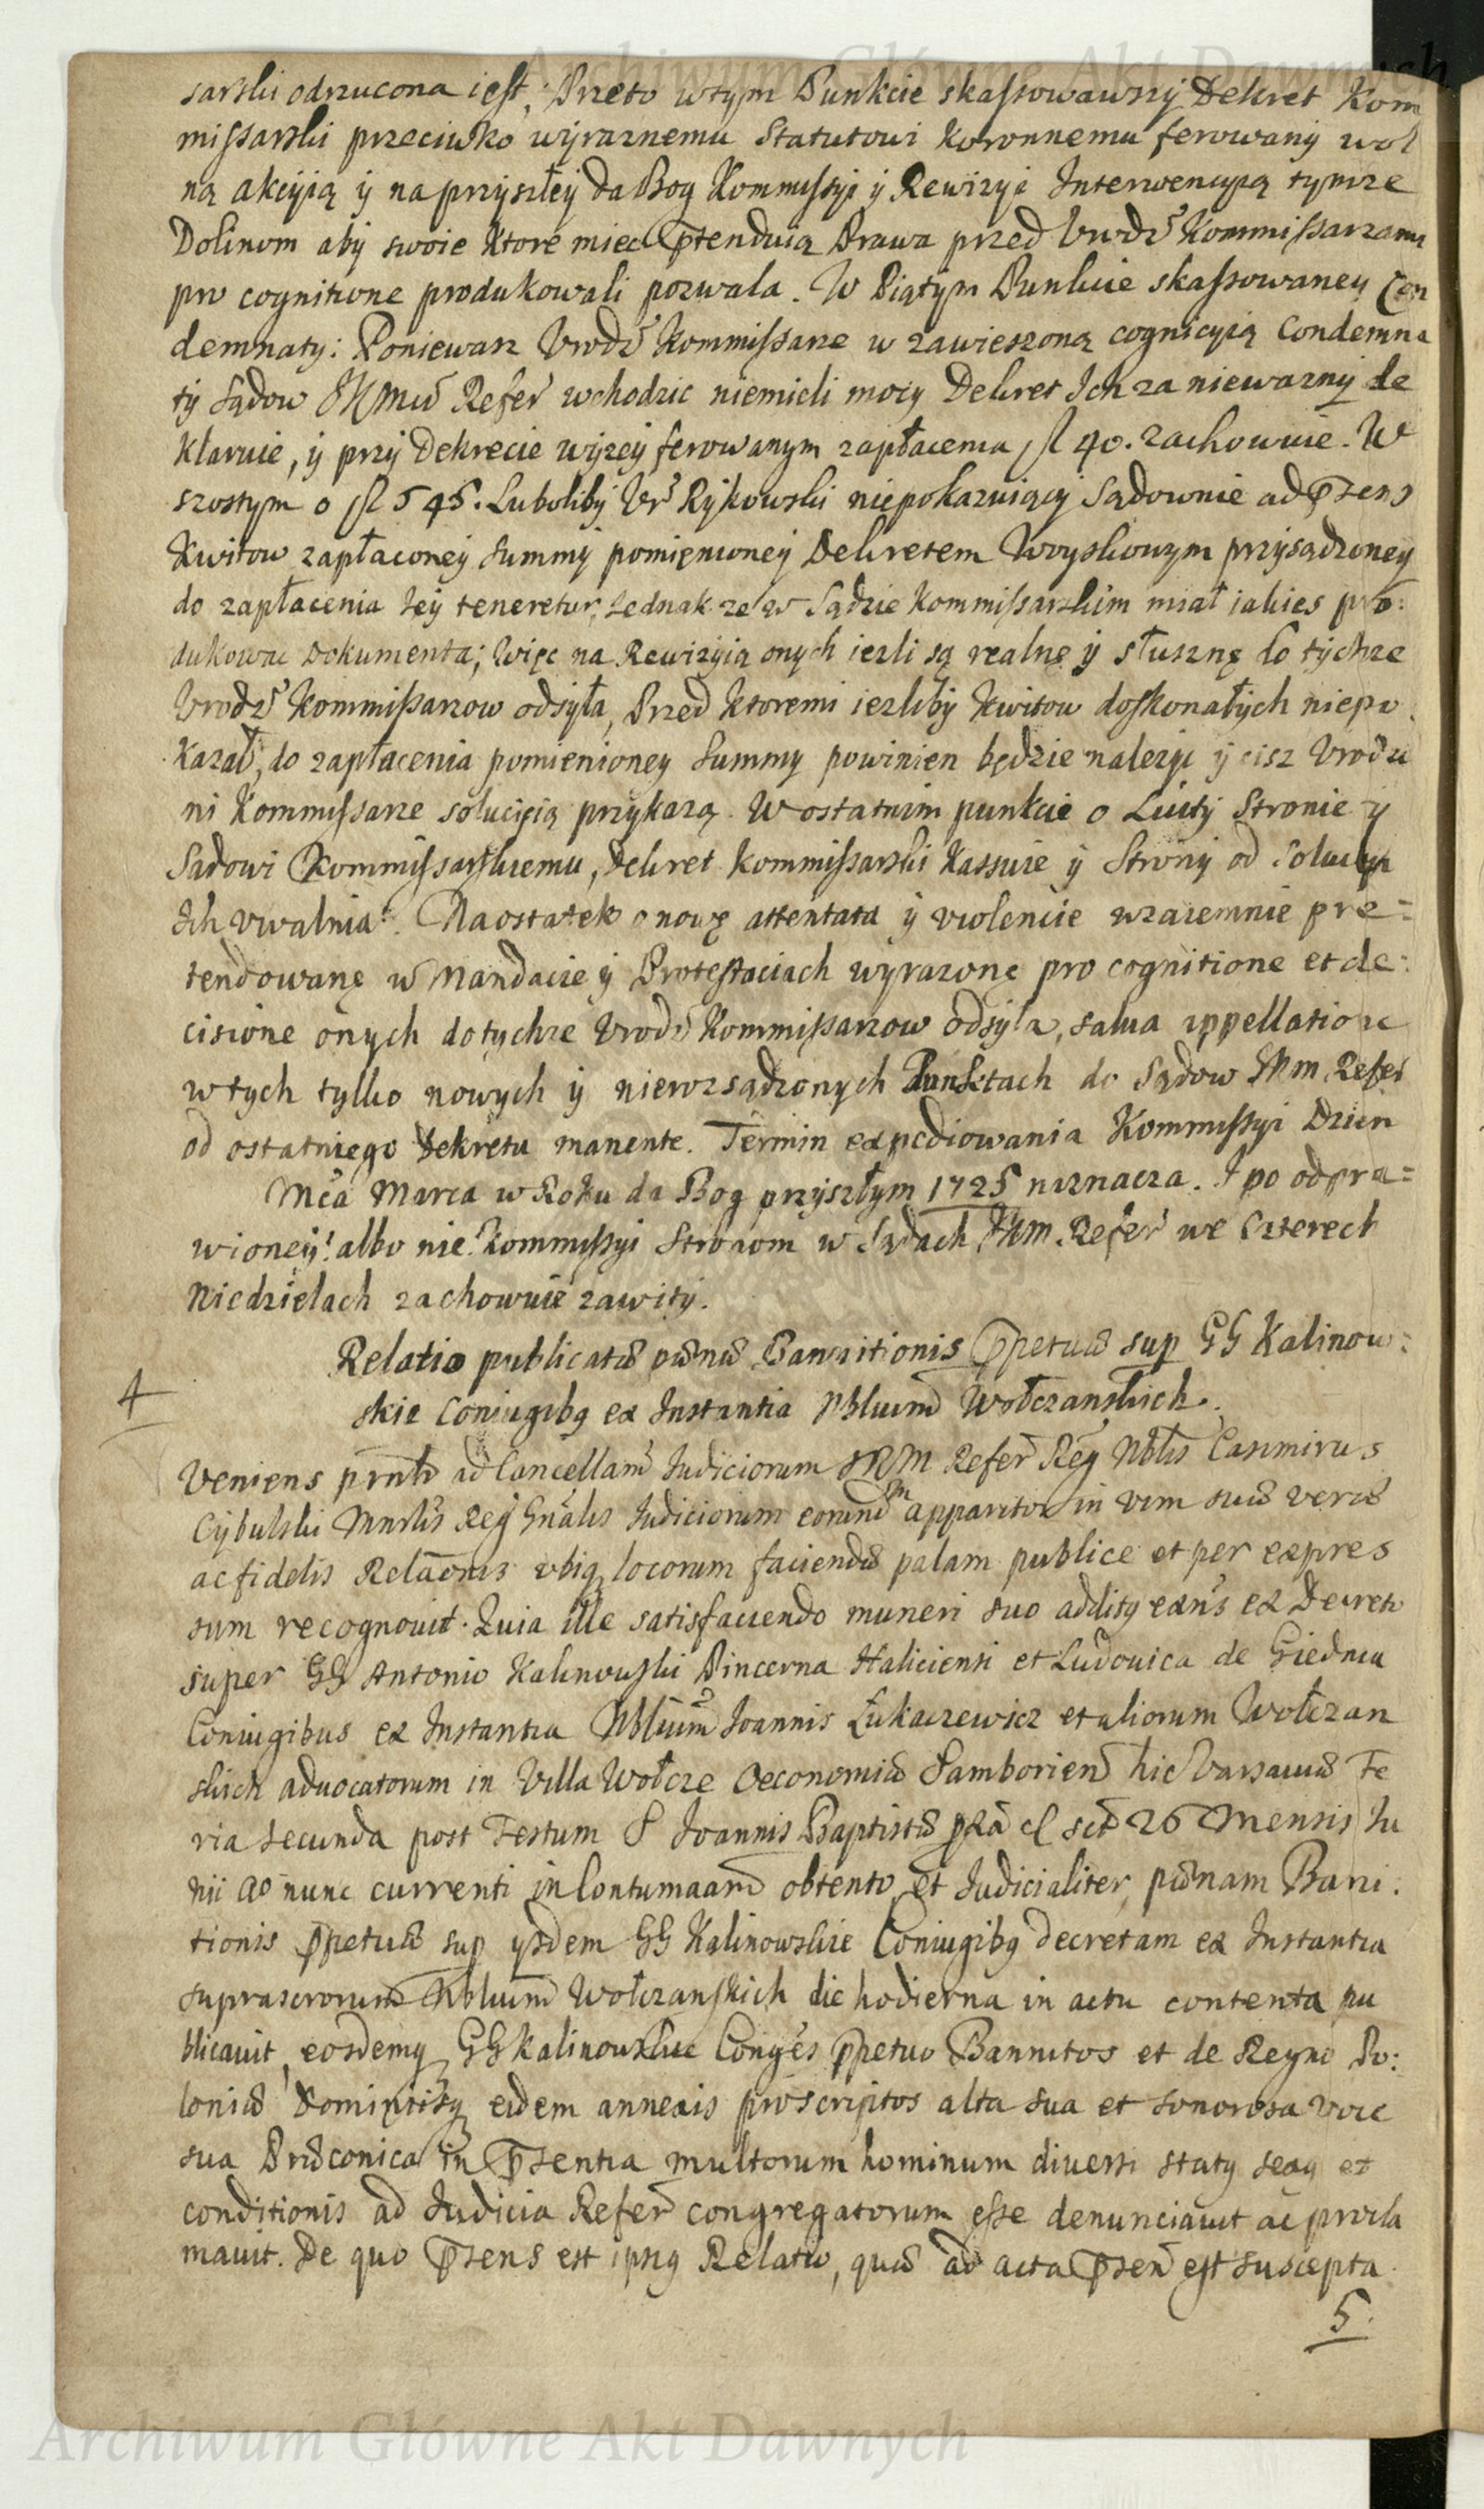 sarski odrzucona iest, Przeto wtym Punkcie skassowawszy Dekret Kom
missarski przeciwko wyraznemu Statutowi Koronnemu ferowany wol
ną akcyią y na przyszłey da Bog Kommissyi y Rewizyi Interwencyią tymze
Dolinom aby swoie ktore miec prtenduią Prawa przed Vrodz Kommissarzami
pro cognitione produkowali pozwala. W Piątym Punkcie skassowaney Con
demnaty: Poniewasz Vrodz Kommissarze w zawieszoną cognicyią Condemna
ty Sądow JKMci Refer wchodzic niemieli mocy Dekret Ich za niewazny de
klaruie, y przy Dekrecie wyzey ferowanym zapłacenia fl 40. zachowuie. W
szostym o fl 545. Luboliby Vr Rykowski niepokazuiący Sądownie ad prsens
Kwitow zapłaconey summy pomienioney Dekretem Woyskowym przysądzoney
do zapłacenia Iey teneretur, Iednak ze w Sądzie Kommissarskim miał iakies pro:
dukowac Dokumenta; Więc na Rewizyią onych iezli są realnę y słusznę do tychze
Vrodz Kommissarzow odsyła, Przed ktoremi iezliby Kwitow doskonałych niepo
kazał, do zapłacenia pomienioney Summy powinien będzie nalezyc y cisz Vrodze
ni Kommissarze solucyią przykazą. W ostatnim punkcie o Luity Stronie y
Sądowi Kommissarskiemu, Dekret kommissarski kassuie y Strony od Solucyi
Ich vwalnia. Naostatek o nowę attentata y violencie wzaiemnie pre=
tendowanę w Mandacie y Protestaciach wyrazonę pro cognitione et de:
cisione onych dotychze Vrodz Kommissarzow odsyła, salua appellatione
w tych tylko nowych y nierozsądzonych Punktach do Sądow JKM Refer
od ostatniego Dekretu manente. Termin expediowania Kommissyi Dzien
Mca Marca w Roku da Bog przyszłym 1725 naznacza. I po odpra=
wioney albo nie Kommissyi Stronom w Sądach JKM Refer we Czterech
Niedzielach zachowuie zawity.
Relatio publicatæ pœnæ Bannitionis ppetuæ sup GG Kalinow:
skie Coniugibq ex Instantia Nblium Wołczanskich.
4
Veniens prnlr ad Cancellam Judiciorum SRM Refer Reg Nblis Casimirus
Cybulski Mnrlis Reg Gnalis Judiciorum eorund apparitor in vim suæ veræ
ac fidelis Relaonis vbiq locorum faciendæ palam publice et per expres
sum recognouit. Quia ille satisfaciendo muneri suo additq exns ex Decreto
super GG Antonio Kalinowski Pincerna Haliciensi et Ludouica de
Coniugibus ex Instantia Nblium Joannis Łukaczewicz et aliorum Wołczan
skich aduocatorum in Villa Wołcze Oeconomiæ Samborien hic Varsauiæ Fe
ria Secunda post Festum S Joannis Baptistæ pxa sct 26 Mensis Ju
nii ao nunc currenti in Contumaam obtento et Judicialiter pœnam Bani:
tionis ppetuæ sup ysdem GG Kalinowskie Coniugibq decretam ex Instantia
suprascrorum Nblium Wołczanskich die hodierna in actu contenta pu
blicauit, eosdemq GG Kalinowskie Conges ppetuo Bannitos et de Regno Po:
loniæ Dominiisq eidem annexis proscriptos alta sua et sonorosa voce
sua Præconica in prsentia multorum hominum diuersi statq sexq et
conditionis ad Judicia Refer congregatorum esse denunciauit ac procla
mauit. De quo prsens est ipsiq Relatio, quæ ad acta prsen est suscepta
5.
Archiwum Główne Akt Dawnych
Archiwum Główne Akt Dawnych